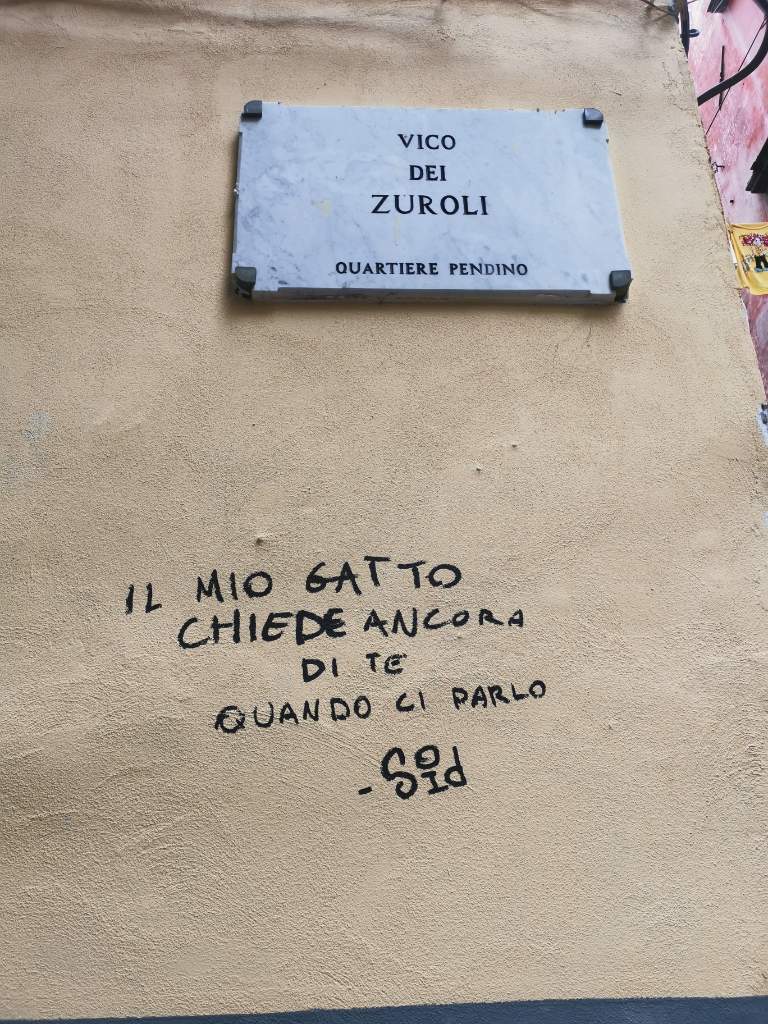 VICO
DEI
ZUROLI
QUARTIERE PENDINO
IL MIO GATTO
CHIEDE ANCORA
DI TE
QUANDO CI PARLO
-Soid